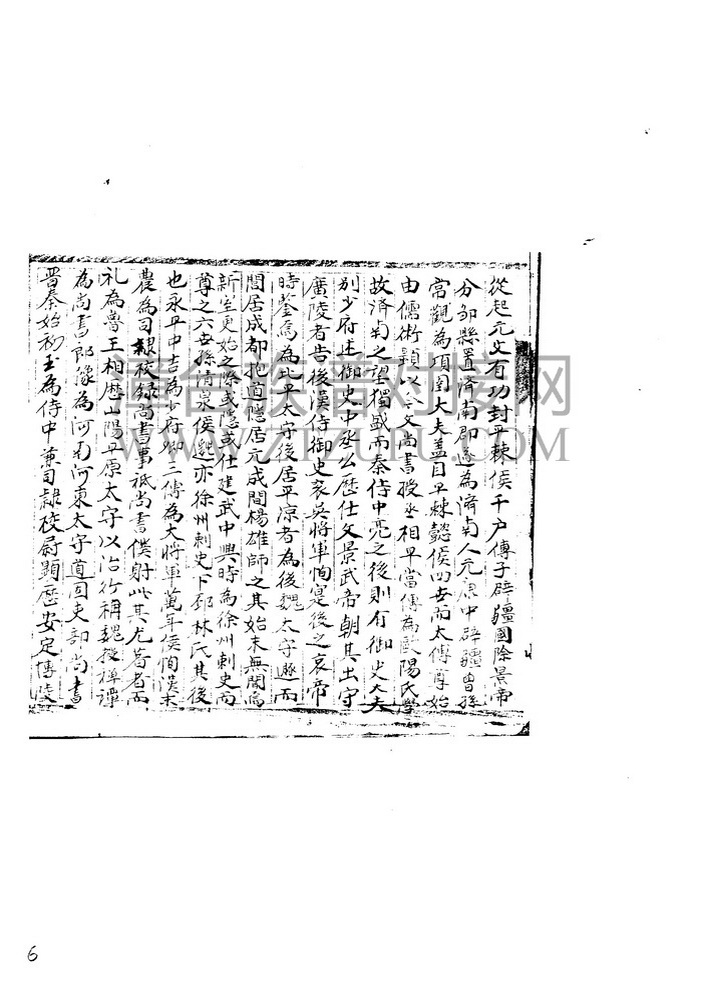 從起元文有功封平棘侯千戶傳子辟疆國除景帝
分邹縣置濟南郡遂為濟南人元康中辟疆曾孫
常觀為項圉大夫蓋自平棘懿侯四世而太傅尊始
由儒術顯以今文尚書授丞相平當傳為歐陽氏學
故濟南之望獨盛而秦侍中亮之後則有御史大夫
別少府述御史中丞公歷仕文景武帝朝其出守
廣陵者告後漢侍御史袞英將軍恂寔後之哀帝
時鉴為為北平太守後居平凉者為後魏太守遯而
閭居成都抱道隱居元成間楊雄師之其始末無聞焉
新室更始之際或隱或仕建武中興時為徐州刺史而
尊之六世孫清泉侯邈亦徐州刺史下邳林氏其後
也永平中吉為少府卿三傳為大將軍萬年侯恂漢末
農為司隸校錄尚書事祗尚書僕射此其尤著者而
礼為魯王相歷山陽平原太守以治行稱魏授禅譚
為尚書郎像為河南河東太守道固吏部尚書
晋泰始初玉為侍中兼司隸校尉顯歷安定博陵
道台族谱对接网
WWW.ZIZUPU.COM
6